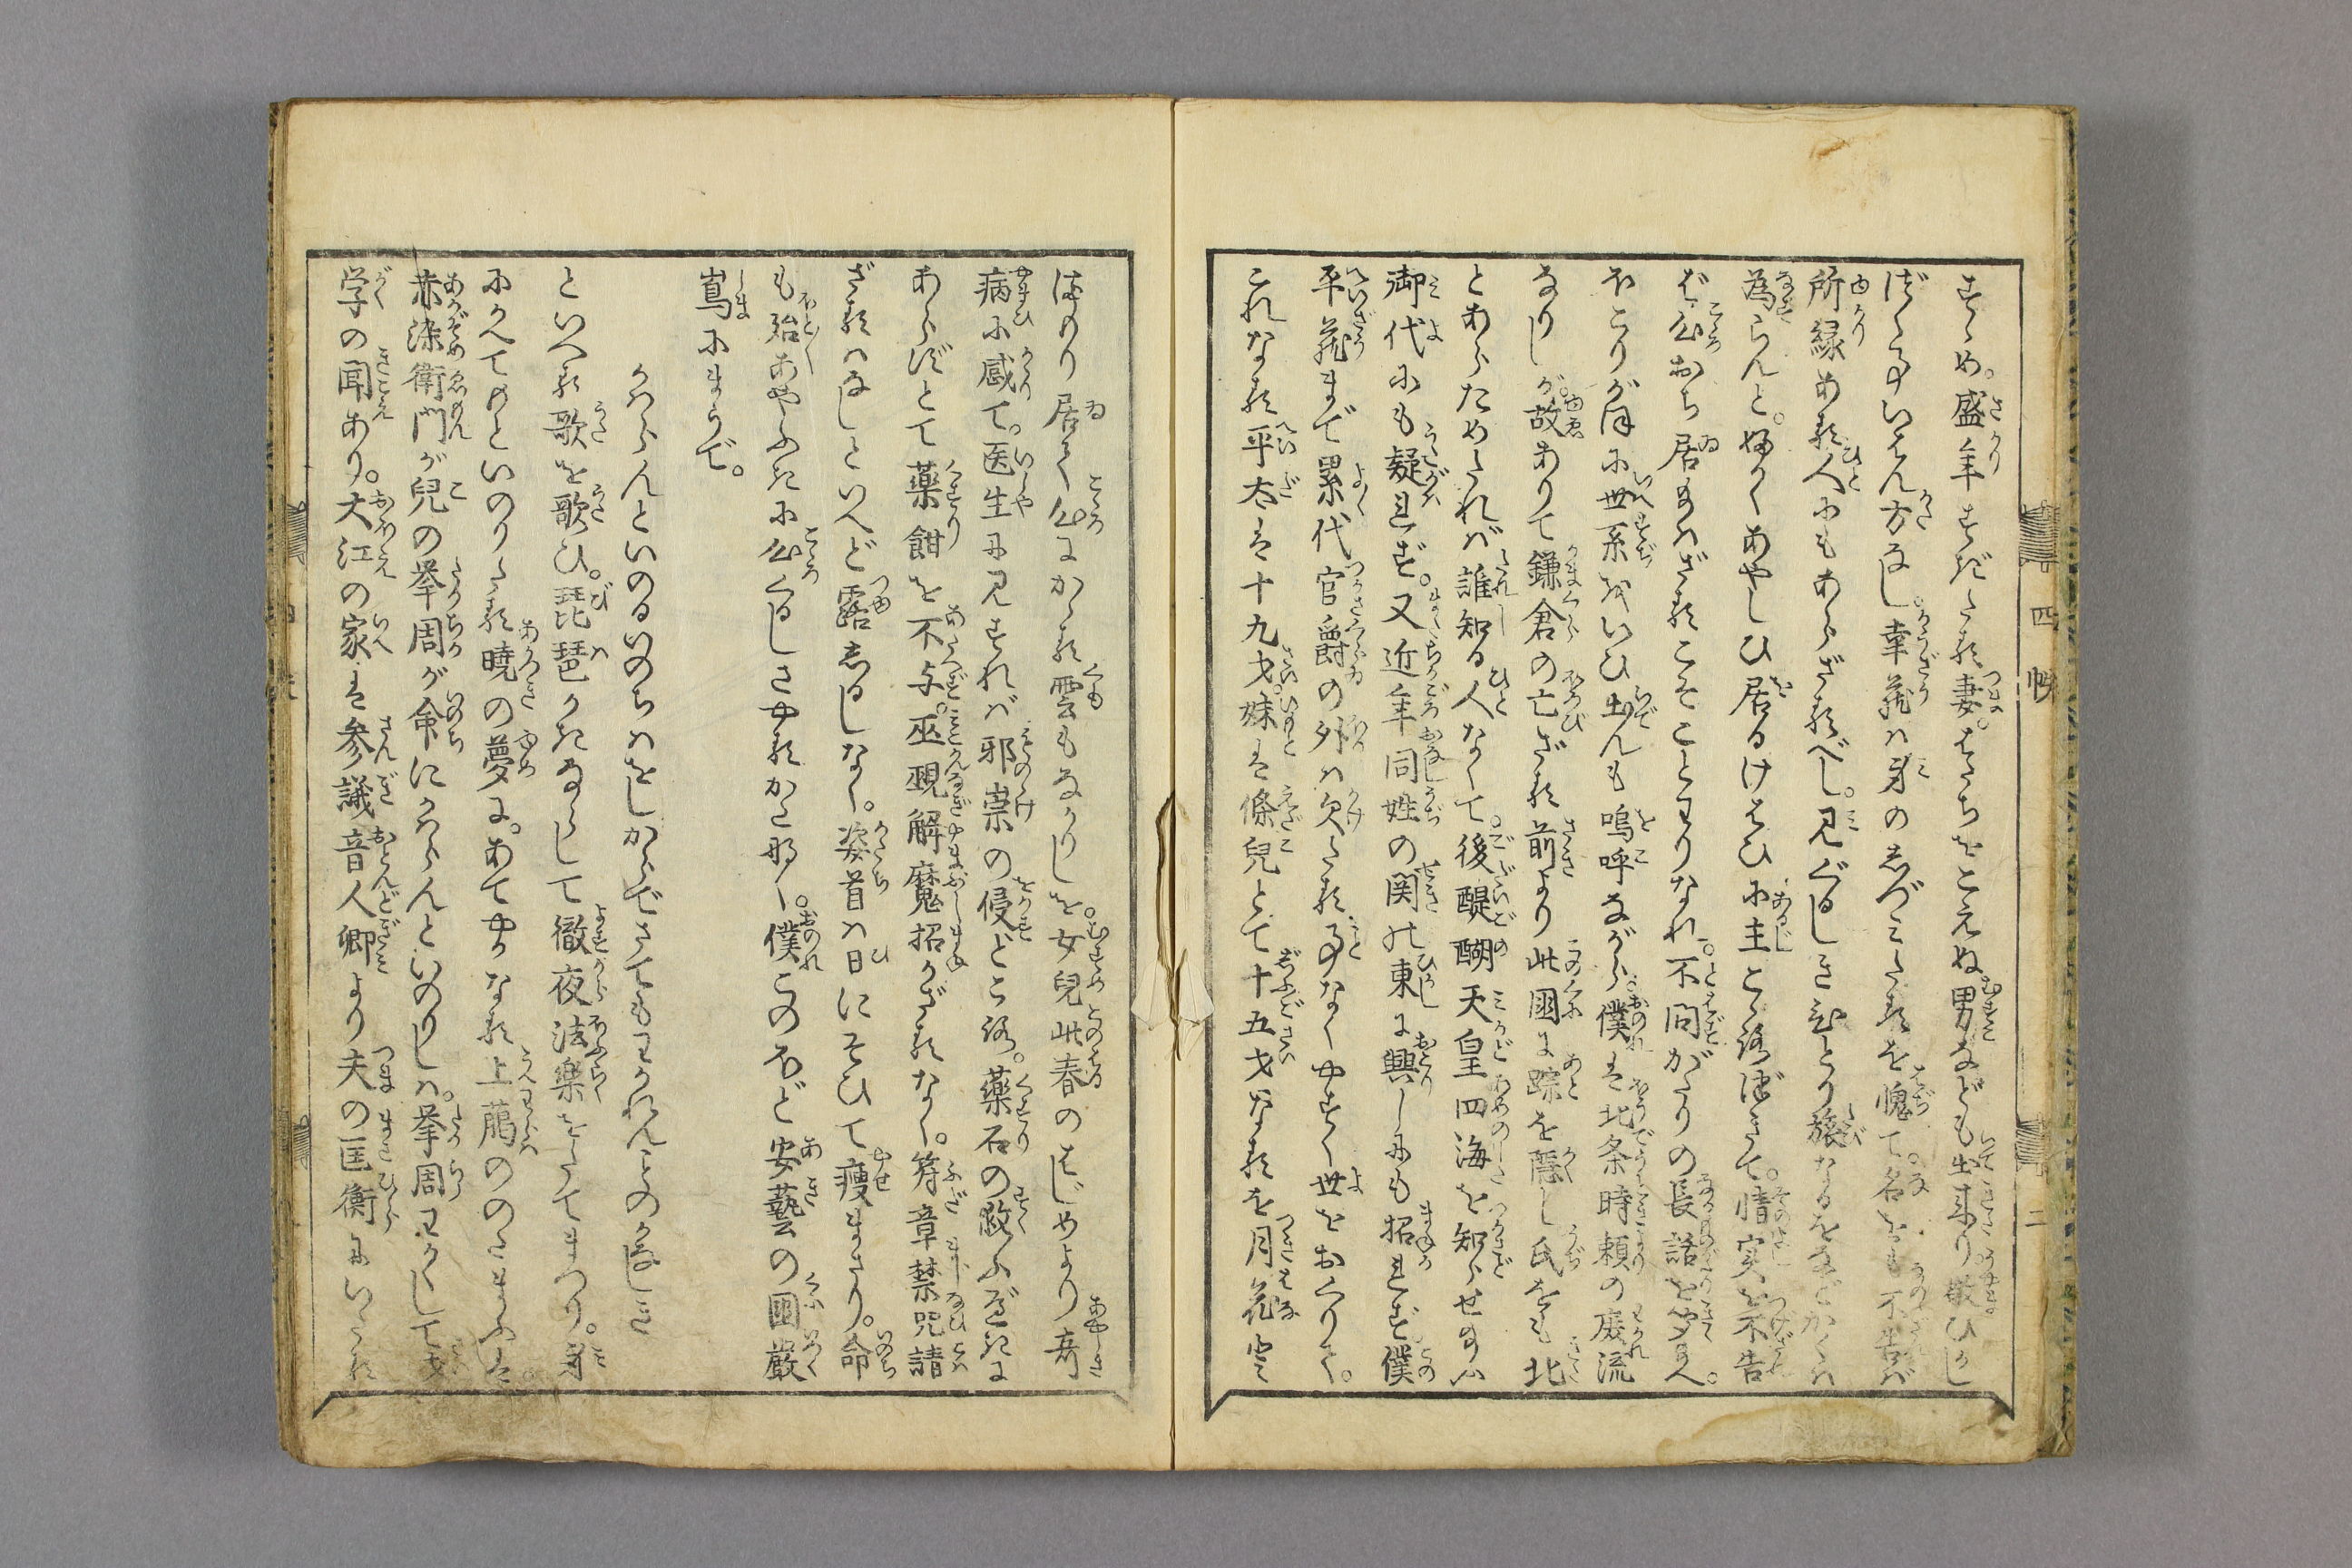 すゝめ。盛年すぎたる妻。はたちをこえぬ男なども出来り。敬ひかし
づく事いはん方なし。幸蔵は身のしづみたるを愧て。名をも不告ば
所縁ある人にもあらざるべし。見ぐるしきひとり旅なるをなどかくは
為らんと。ふかくあやしひ居るけはひに主こゝろづきて。情実を不告
ば心おち居給はざることわりなれ。不問がたりの長話を聞給へ。
ほこりがほに世系をいひ出んも嗚呼ながら。僕は北条時頼の庶流
なりしが。故ありて鎌倉の亡ざる前より此国に踪を隠し氏をも北
とあらためたれば誰知る人なくて。後醍醐天皇四海を知らせ給ふ
御代にも疑れず。又近年同姓の関の東に興しにも招れず僕
平蔵まで累代官爵の外は欠たる事なくやすく世をおくりて。
これなる平太は十九才。妹は條児とて十五才なるを月花と
はめり居て心にかゝる雲もなかりしを。女児此春のはじめより奇
病に感て。医生に見すれば邪祟の侵ところ。薬石の救ふべきに
あらずとて薬餌を不与。巫覡解魔招かざるなく。符章禁咒請
ざるはなしといへど露しるしなく。姿首は日にそひて痩まさり。命
も殆あやふきに心くるしさやるかたなく。僕このほど安藝の国厳
島にまうで。
かはらんといのるいのちはをしからでさてもわかれんことのかなしき
といへる歌を歌ひ。琵琶かきならして徹夜法楽をたてまつり。身
にかへてのといのりたる暁の夢に。あてやかな上臈ののたまふは。
赤染衛門が児の挙周が命にかはらんといのりしは。挙周わかくして才
学の聞あり。大江の家は参議音人卿より夫の匡衡にいたれ
四
帙
二